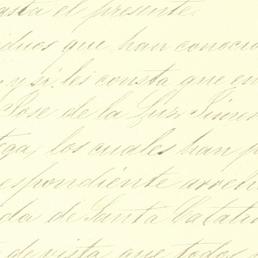 hasta el presente.
iduos que han conocid
, y si les consta que en
Jose de la Luz Simen
tega, los cuales han p
espondiente arrch
da de Santa Catalin
de vista que todos